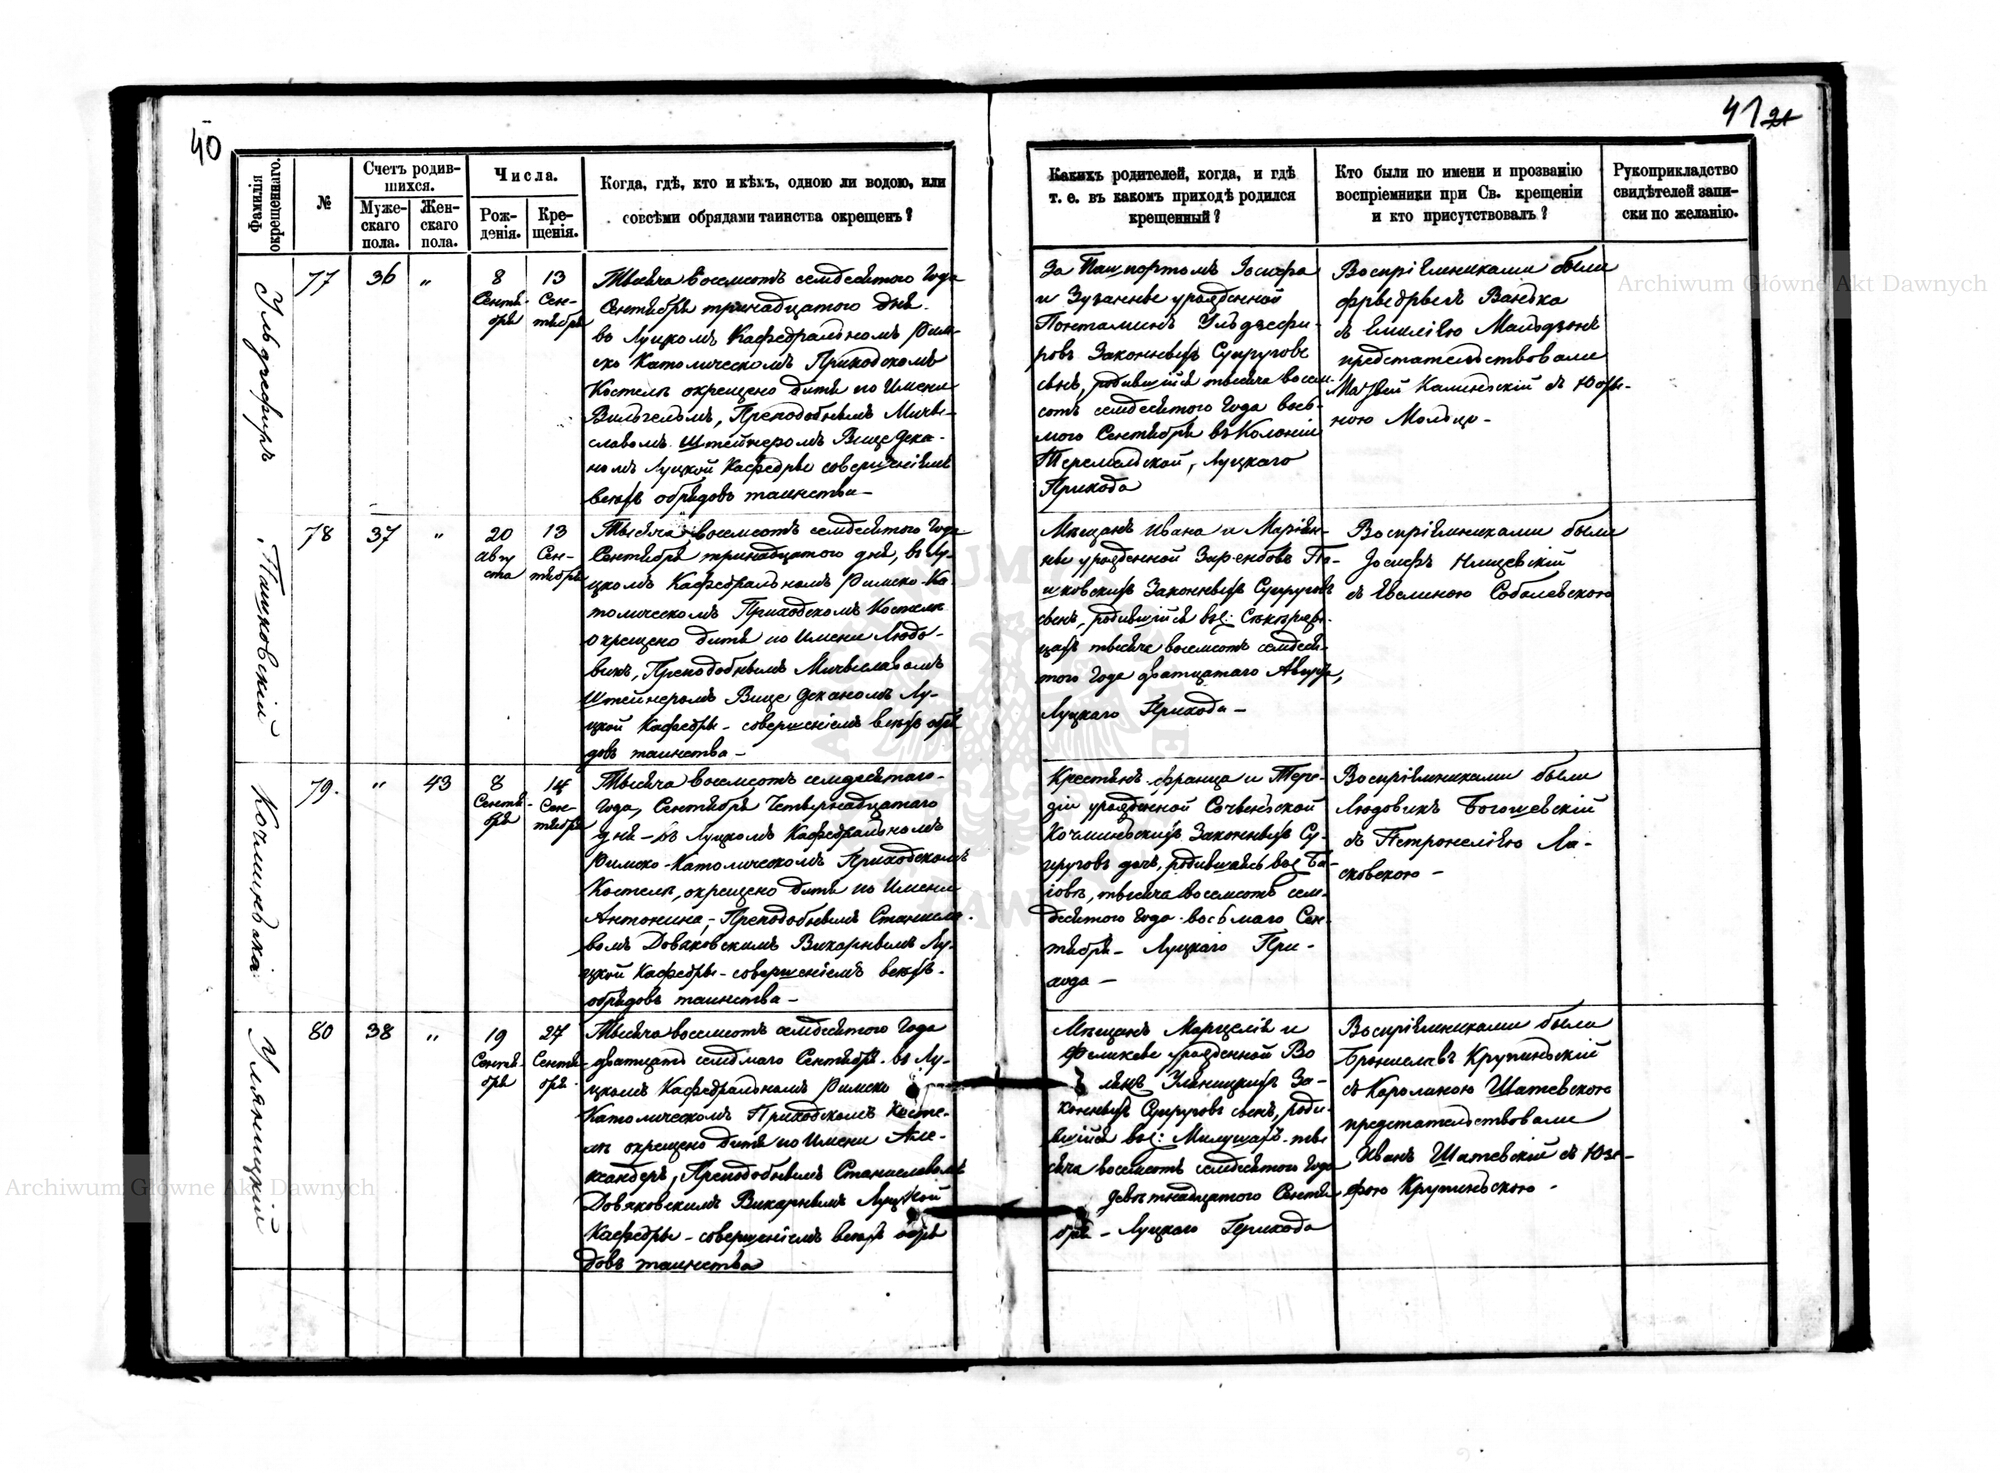 40
41 21
Фамилія окрещеннаго.
№
Счетъ родившихся.
Мужескаго пола.
Женскаго пола.
Числа.
Рожденія.
Крещенія.
Когда, гдѣ, кто и кѣмъ, одною ли водою, или
совсѣми обрядами таинства окрещенъ?
Какихъ родителей, когда, и гдѣ
т. е. въ какомъ приходѣ родился
крещенный?
Кто были по имени и прозванію
воспріемники при Св. крещеніи
и кто присутствовалъ?
Рукоприкладство
свидѣтелей запи-
ски по желанію.
77
36
„
8
Сентя-
бря
13
Сен-
тября
Тысяча восемсотъ семдесятого Года
Сентября тринадцатого дня
въ Луцкомъ Кафедральномъ Рим-
ско Католическомъ Приходскомъ
Костелѣ окрещено дитя по Имени
Вильгельмъ, Преподобнымъ Мичи-
славомъ Штейнеромъ Вице Дека-
номъ Луцкой Кафедры совершеніемъ
всѣхъ обрядовъ таинства –
За Пашпортомъ Іосифа
и Зузанны урожденной
ровъ Законныхъ Супруговъ
сынъ, родившійся тысяча восем-
сотъ семдесятого Года вось-
мого Сентября въ Колоніи
Луцкаго
Прихода
Воспріемниками были
съ Емиліею
предстательствовали
Калинскій съ Юзе-
78
37
„
20
Авгу
ста
13
Сен-
тября
Пашковскій
Тысяча восемсотъ семдесятого Года
Сентября тринадцатого дня, въ Лу-
цкомъ Кафедральномъ Римско-Ка-
толическомъ Приходскомъ Костелѣ
окрещено дитя по Имени Людо-
викъ, Преподобнымъ Мичиславомъ
Штейнеромъ Вице Деканомъ Лу-
цкой Кафедры – совершеніемъ всѣхъ обря
довъ таинства –
Мѣщанъ Ивана и Маріан-
ны урожденной Зарембовъ Па-
шковскихъ Законныхъ Супруговъ
сынъ, родившійся
тысяча восемсотъ семдеся-
того Года дватцатаго Августа,
Луцкаго Прихода –
Воспріемниками были
Іосифъ
съ Евелиною Соболевскою
79.
„
43
8
Сентя-
бря
14
Сен-
тября
Тысяча восемсотъ семдесятого
Года, Сентября Четырнадцатаго
дня – въ Луцкомъ Кафедральномъ
Римско-Католическомъ Приходскомъ
Костелѣ, окрещено дитя по Имени
Антонина, – Преподобнымъ Станисла-
вомъ Довяковскимъ Викарнымъ Лу-
цкой Кафедры – совершеніемъ всѣхъ
обрядовъ таинства –
Крестянъ Франца и Тере-
зіи урожденной
Законныхъ Су-
пруговъ дочь, родившаясь
тысяча восемсотъ сем-
десятого Года восьмаго Сен-
тября – Луцкаго При-
хода –
Воспріемниками были
Людовикъ Богошевскій
съ Петронелією Ля-
сковскою –
80
38
„
19
Сентя-
бря
27
Сентя-
бря
Уляницкій
Тысяча восемсотъ семдесятого Года
дватцать семдмаго Сентября въ Лу-
цкомъ Кафедральномъ Римско
Католическомъ Приходскомъ Косте-
лѣ окрещено дитя по Имени Але-
ксандеръ, Преподобнымъ Станиславомъ
Довяковскимъ Викарнымъ Луцкой
Кафедры – совершеніемъ всѣхъ обря
довъ таинства
Мѣщанъ Марцелія и
Феликсы урожденной Во
Уляницкихъ За-
конныхъ Супруговъ сынъ, роди-
вшійся ты
сяча восемсотъ семдесятого Года
девятнадцатого Сентя
бря – Луцкаго Прихода
Воспріемниками были
Брониславъ Крупинскій
съ Каролиною Шатевскою
предстательствовали
Иванъ Шатевскій съ Юзе-
фою Крупинскою –
Archiwum Główne Akt Dawnych
Archiwum Główne Akt Dawnych